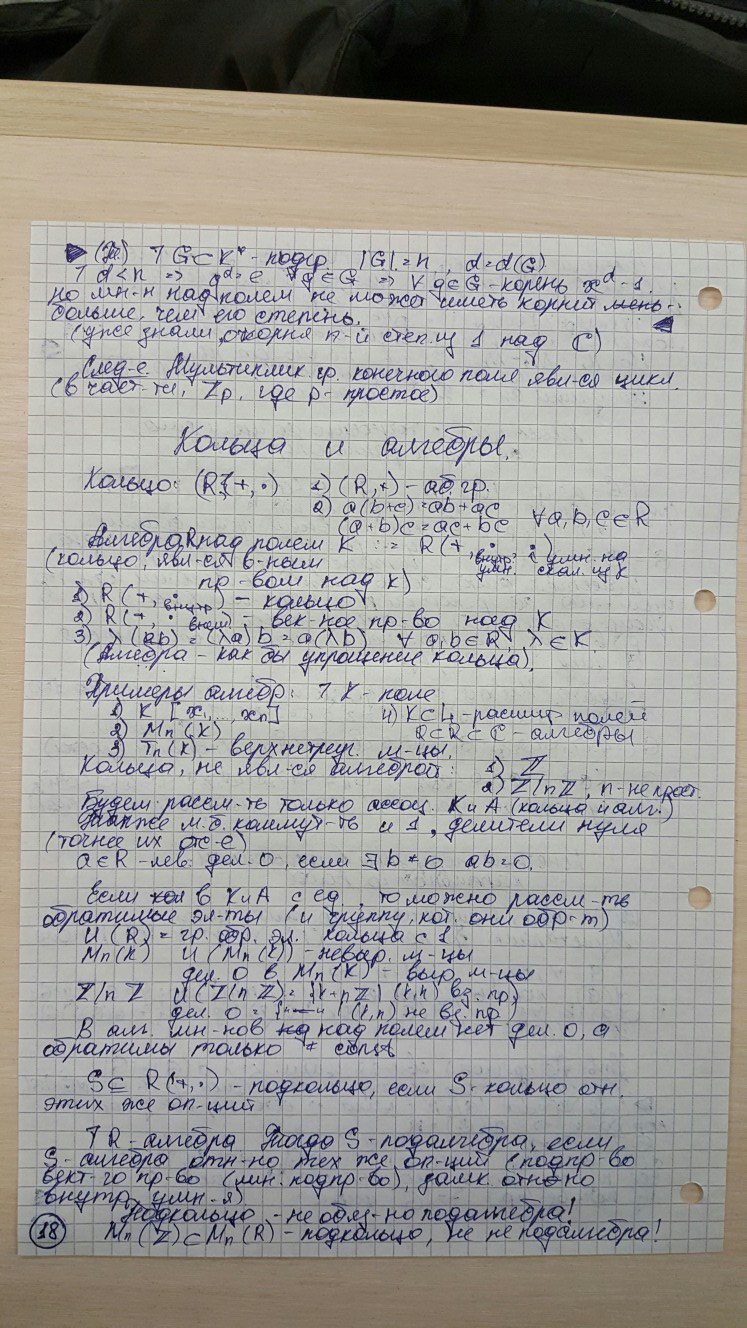 (Th.) ⅂ G ⊂ K* - подгр. |G| = n, d = d(G)
⅂ d < n => g^d = e ∀g∈G => ∀ g∈G - корень x^d - 1.
но мн-н над полем не может иметь корней
больше, чем его степень.
(уже знали, корня n-й степ. из 1 над ℂ)
След-е. Мультиплик. гр. конечного поля явл-ся цикл.
(в част-ти, Zp, где p - простое)
Кольца и алгебры.
Кольцо: (R, +, ·) 1) (R, +) - аб. гр.
2) a(b+c) = ab + ac
(a+b)c = ac + bc ∀ a, b, c ∈ R
Алгебра R над полем K := R(+, · внутр. умн., · умн. на скал. из K)
(кольцо, явл-ся в-ным
пр-вом над K)
1) R (+, · внутр) - кольцо
2) R (+, · внешн) - век-ное пр-во над K
3) λ(ab) = (λa)b = a(λb) ∀ a, b ∈ R, λ ∈ K.
(Алгебра - как бы упрощение кольца).
Примеры алгебр: ⅂ K - поле
1) K [x₁, ..., xn] 4) K ⊂ L - расшир. полей
2) Mn(K) ℝ ⊂ ℝ ⊂ ℂ - алгебры
3) Tn(K) - верхнетреуг. м-цы.
Кольца, не явл-ся алгеброй: 1) ℤ
2) ℤ/nℤ, n - не прост.
Будем рассм-ть только ассоц. K и A (кольца и алг.)
Также м.б. коммут-ть и 1, делители нуля
(точнее их отс-е)
a∈R - лев. дел. 0, если ∃ b ≠ 0 ab = 0.
Если в K и A с ед., то можно рассм-ть
обратимые эл-ты (и группу, кот. они обр-т)
U(R) = гр. обр. эл. кольца с 1
Mn(K) U(Mn(K)) - невыр. м-цы
дел. 0 в Mn(K) - выр. м-цы
ℤ/nℤ U(ℤ/nℤ) = {k+nℤ | (k,n) вз. пр.}
дел. 0 = {—"— | (k,n) не вз. пр}
В алг. мн-нов над полем нет дел. 0, а
обратимы только ≠ const
S ⊆ R(+, ·) - подкольцо, если S - кольцо отн.
этих же оп-ций
⅂ R - алгебра Тогда S - подалгебра, если
S - алгебра отн-но тех же оп-ций (подпр-во
вект-го пр-во (лин. подпр-во), замк. отн-но
внутр. умн-я)
Подкольцо - не обяз-но подалгебра!
Mn(ℤ) ⊂ Mn(ℝ) - подкольцо, не не подалгебра!
18